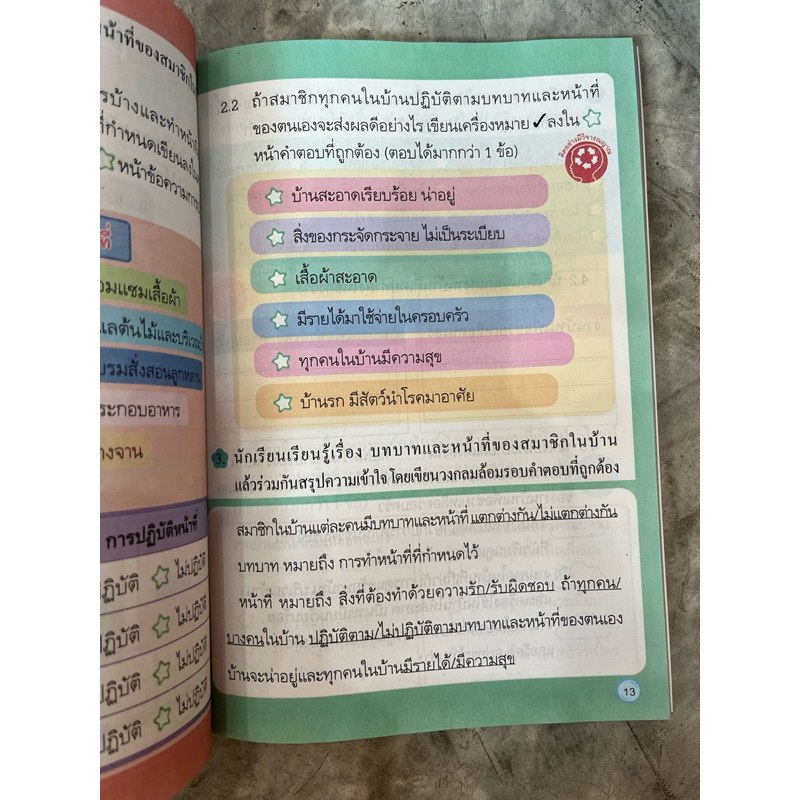 น้าที่ของสมาชิกใน
รบ้างและทำหน้า
ที่กำหนดเขียนลงใน
หน้าข้อความการ
ที่
อมแซมเสื้อผ้า
แลต้นไม้และบริเวณ
บรมสั่งสอนลูกหลาน
ระกอบอาหาร
างจาน
การปฏิบัติหน้าที่
ปฏิบัติ ไม่ปฏิบัติ
ปฏิบัติ ไม่ปฏิบัติ
ปฏิบัติ ไม่ปฏิบัติ
ปฏิบัติ ไม่ปฏิบัติ
2.2 ถ้าสมาชิกทุกคนในบ้านปฏิบัติตามบทบาทและหน้าที่
ของตนเองจะส่งผลดีอย่างไร เขียนเครื่องหมาย ✓ ลงใน
หน้าคำตอบที่ถูกต้อง (ตอบได้มากกว่า 1 ข้อ)
คิดอย่างมีวิจารณญาณ
บ้านสะอาดเรียบร้อย น่าอยู่
สิ่งของกระจัดกระจาย ไม่เป็นระเบียบ
เสื้อผ้าสะอาด
มีรายได้มาใช้จ่ายในครอบครัว
ทุกคนในบ้านมีความสุข
บ้านรก มีสัตว์นำโรคมาอาศัย
3. นักเรียนเรียนรู้เรื่อง บทบาทและหน้าที่ของสมาชิกในบ้าน
แล้วร่วมกันสรุปความเข้าใจ โดยเขียนวงกลมล้อมรอบคำตอบที่ถูกต้อง
สมาชิกในบ้านแต่ละคนมีบทบาทและหน้าที่ แตกต่างกัน/ไม่แตกต่างกัน
บทบาท หมายถึง การทำหน้าที่ที่กำหนดไว้
หน้าที่ หมายถึง สิ่งที่ต้องทำด้วยความรัก/รับผิดชอบ ถ้าทุกคน/
บางคนในบ้าน ปฏิบัติตาม/ไม่ปฏิบัติตามบทบาทและหน้าที่ของตนเอง
บ้านจะน่าอยู่และทุกคนในบ้านมีรายได้/มีความสุข
13